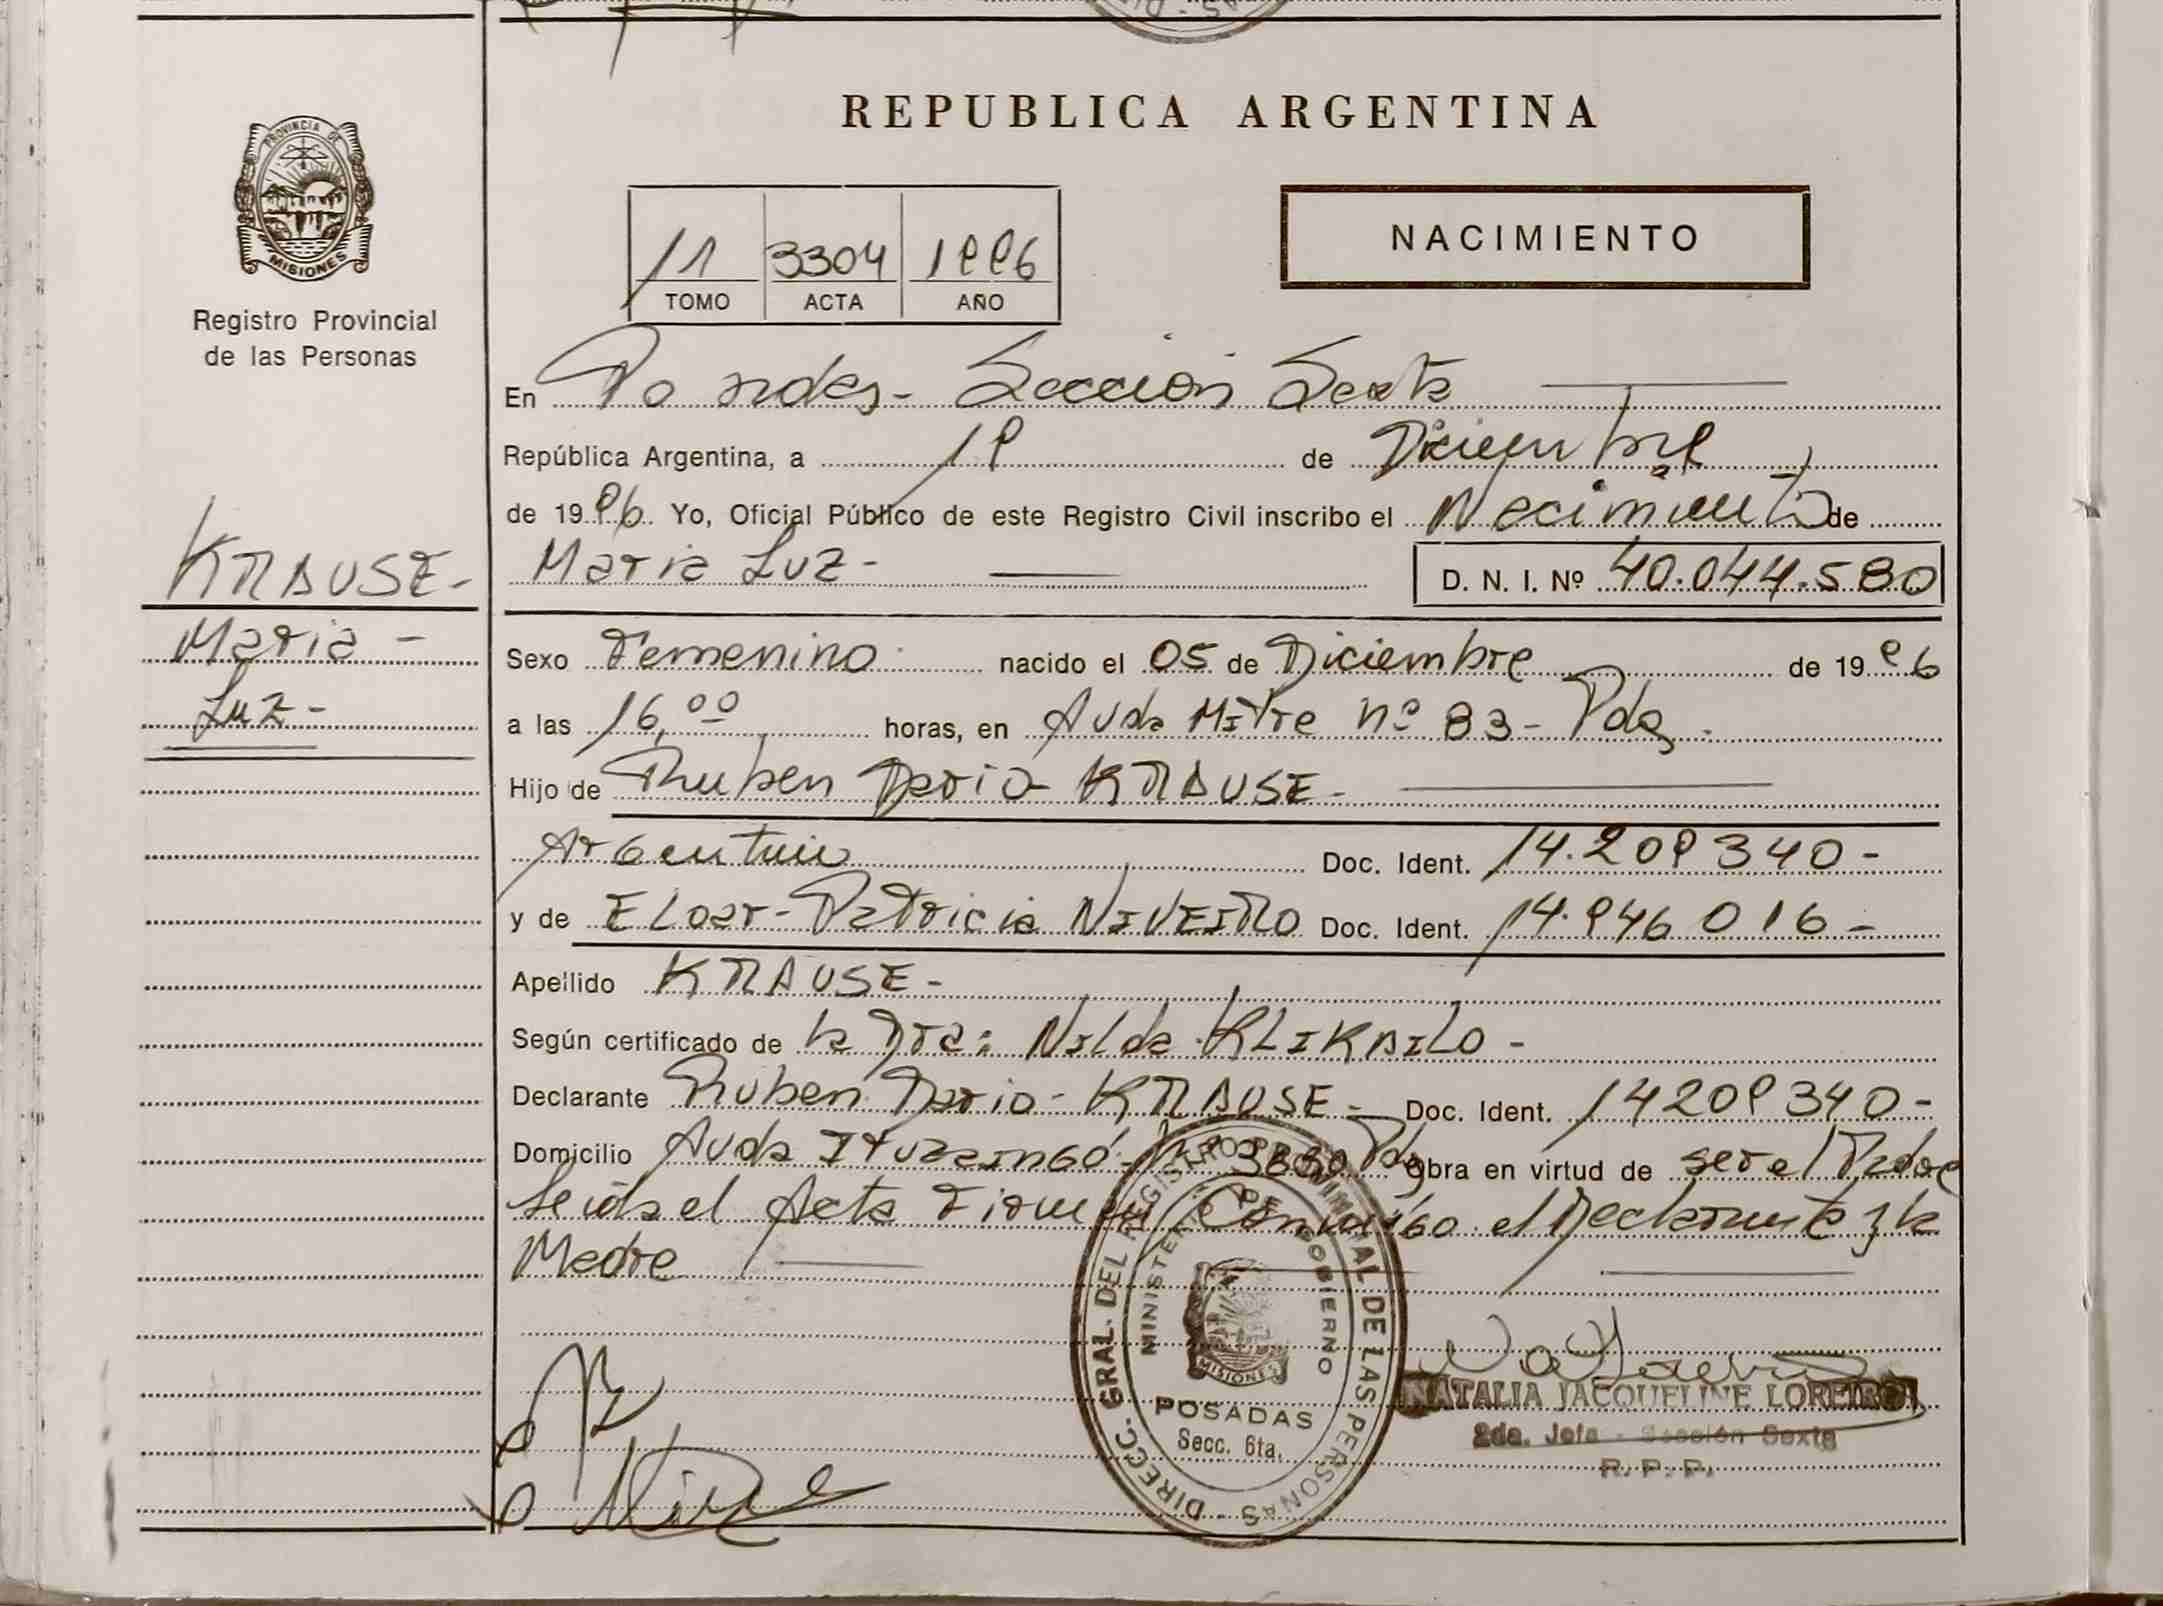 REPUBLICA ARGENTINA
PROVINCIA DE
MISIONES
Registro Provincial
de las Personas
11 3304 1996
TOMO ACTA AÑO
NACIMIENTO
En Posadas - Sección Sexta
República Argentina, a 19 de Diciembre
de 1996 Yo, Oficial Público de este Registro Civil inscribo el Necimiento de
KRAUSE-
Maria Luz - D. N. I. Nº 40.044.580
Maria -
Luz -
Sexo Femenino nacido el 05 de Diciembre de 1996
a las 16,00 horas, en Avda Mitre nº 83 - Pdas.
Hijo de Ruben Dario KRAUSE -
Argentino Doc. Ident. 14.209340 -
y de Patricia NIVEIRO Doc. Ident. 14.946016 -
Apellido KRAUSE -
Según certificado de la Dra: Nilda KLIKAILO -
Declarante Ruben Dario - KRAUSE - Doc. Ident. 14209340 -
Domicilio Avda Ituzaingó Pdas Obra en virtud de ser el Padre
Leida el Acta Firman Conmigo el Declarante y la
Madre
DIRECC. GRAL. DEL REGISTRO PROVINCIAL DE LAS PERSONAS -
MINISTERIO DE GOBIERNO
MISIONES
POSADAS
Secc. 6ta.
NATALIA JACQUELINE LOREIRO
2da. Jefa - Sección Sexta
R. P. P.